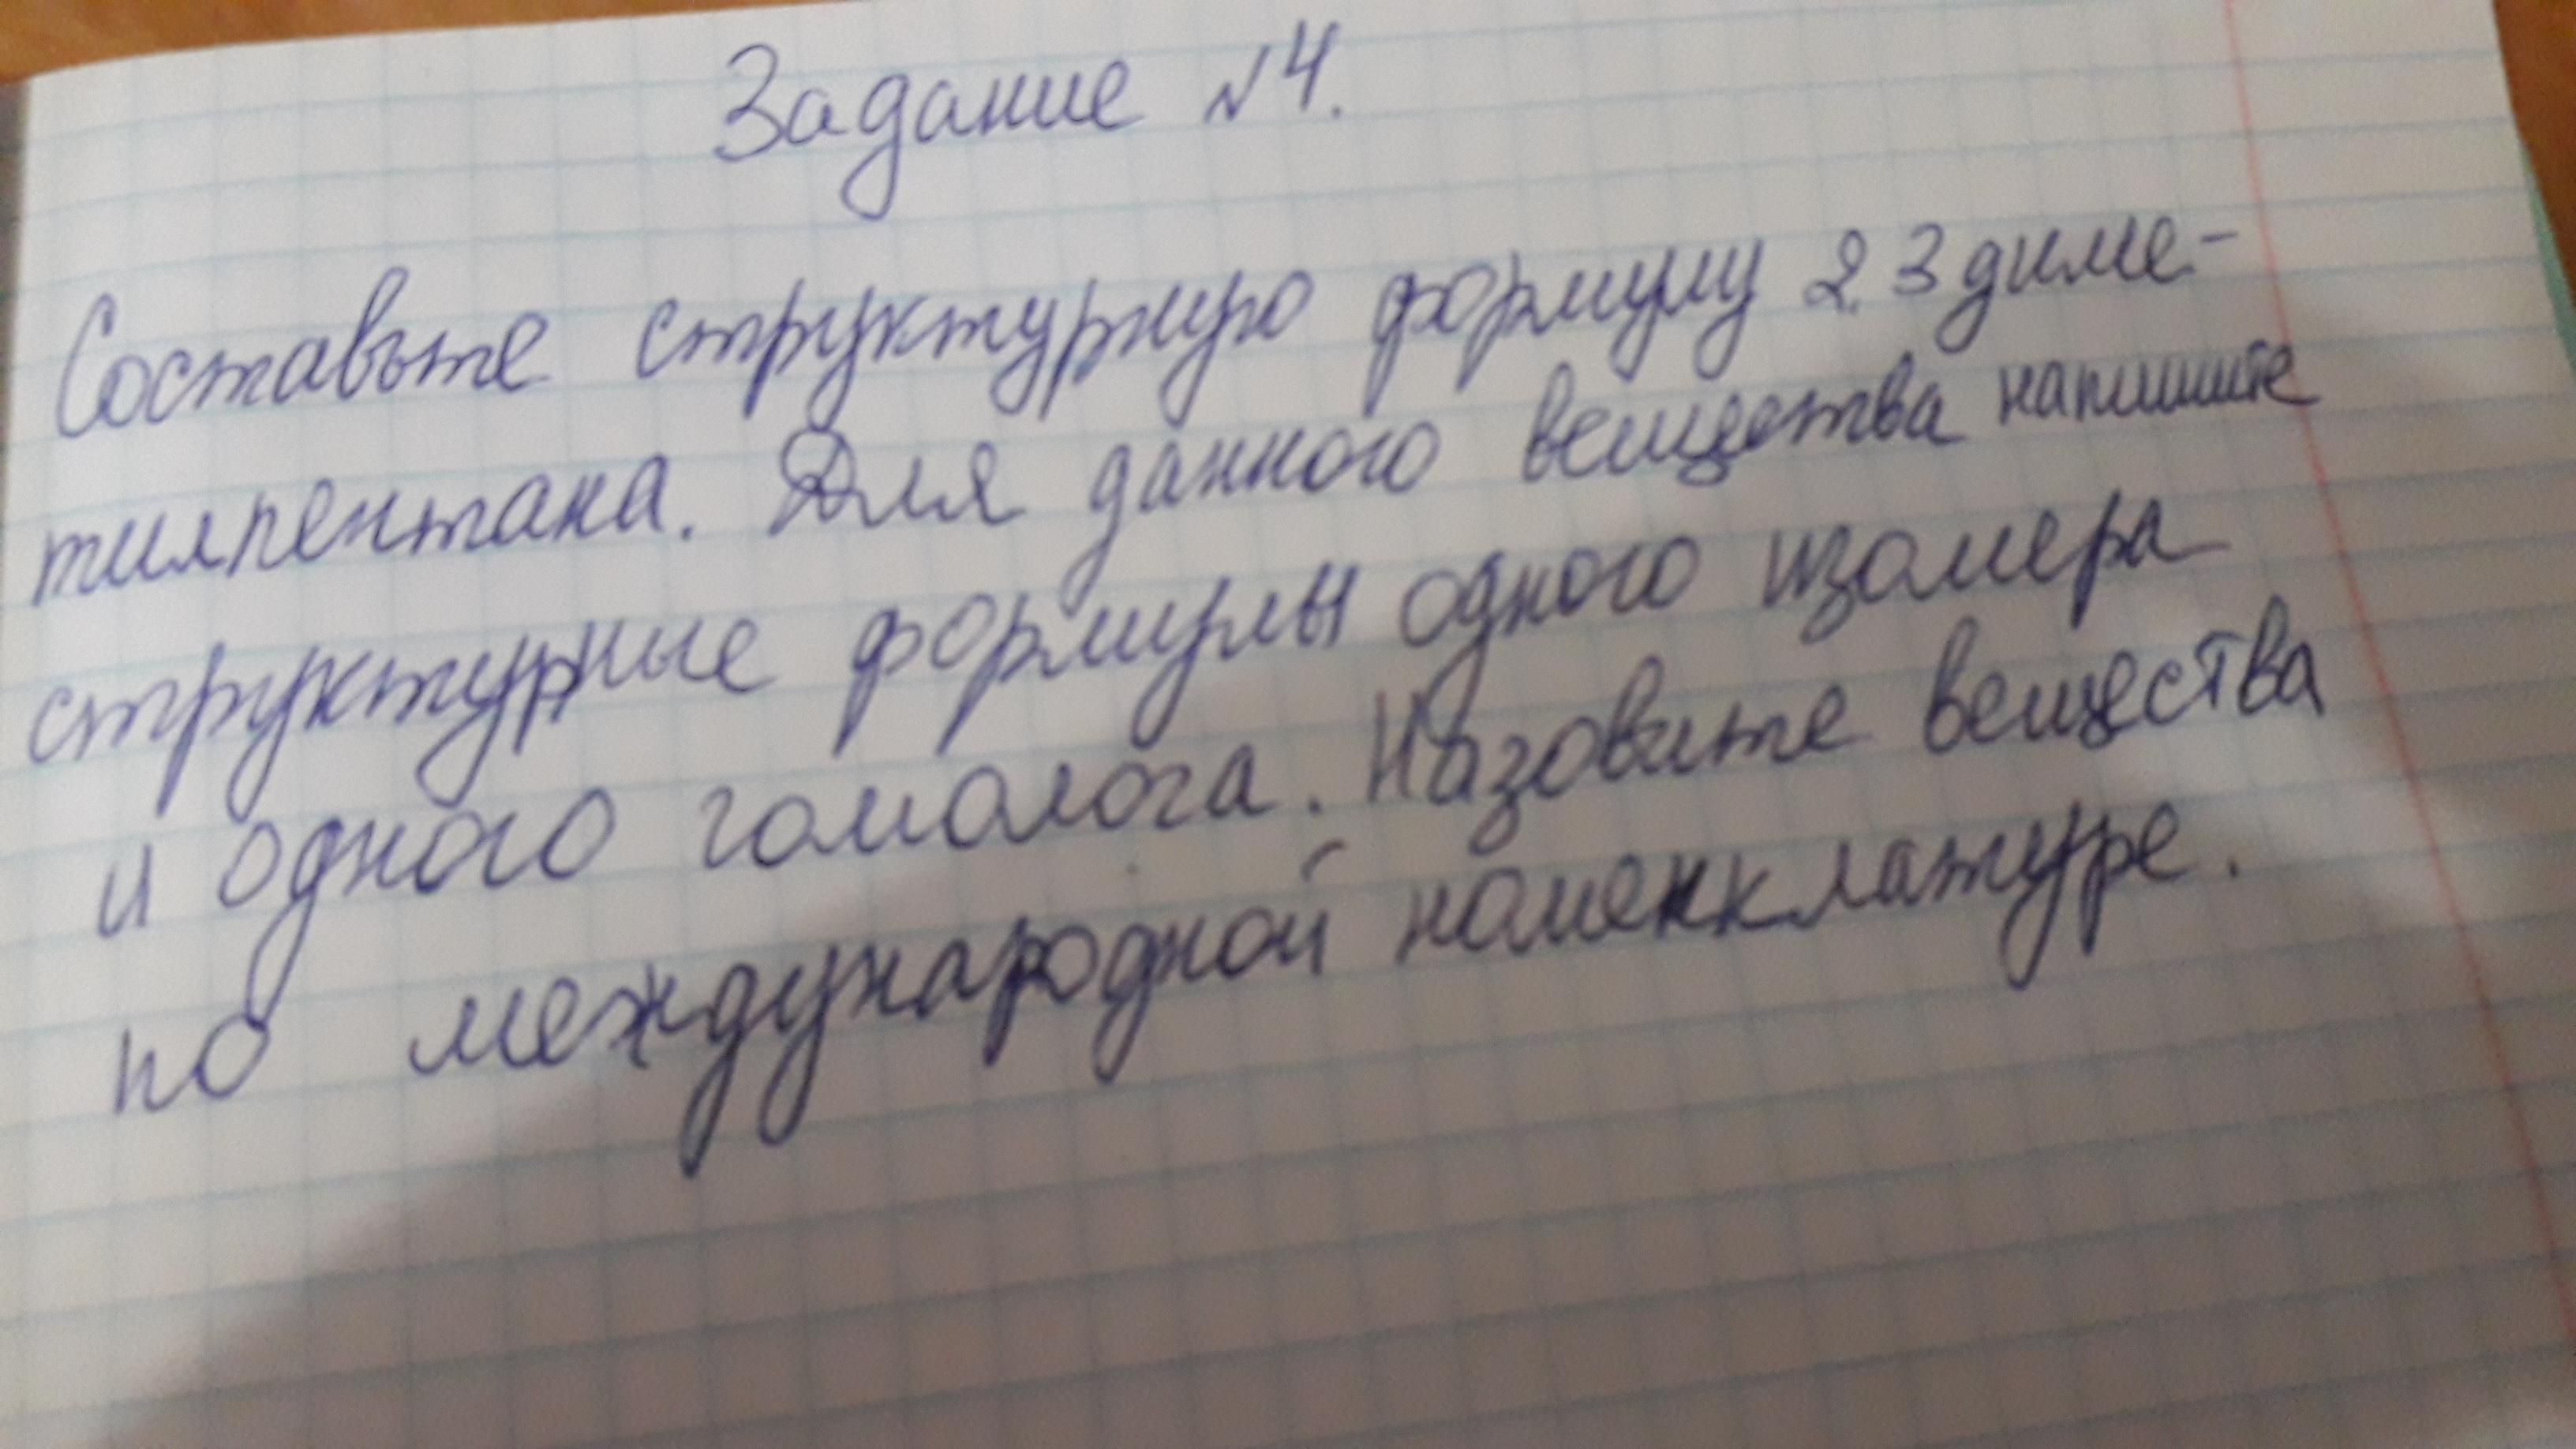 Задание №4.
Составьте структурную формулу 2,3 диме-
тилпентана. Для данного вещества напишите
структурные формулы одного изомера
и одного гомолога. Назовите вещества
по международной номенклатуре.